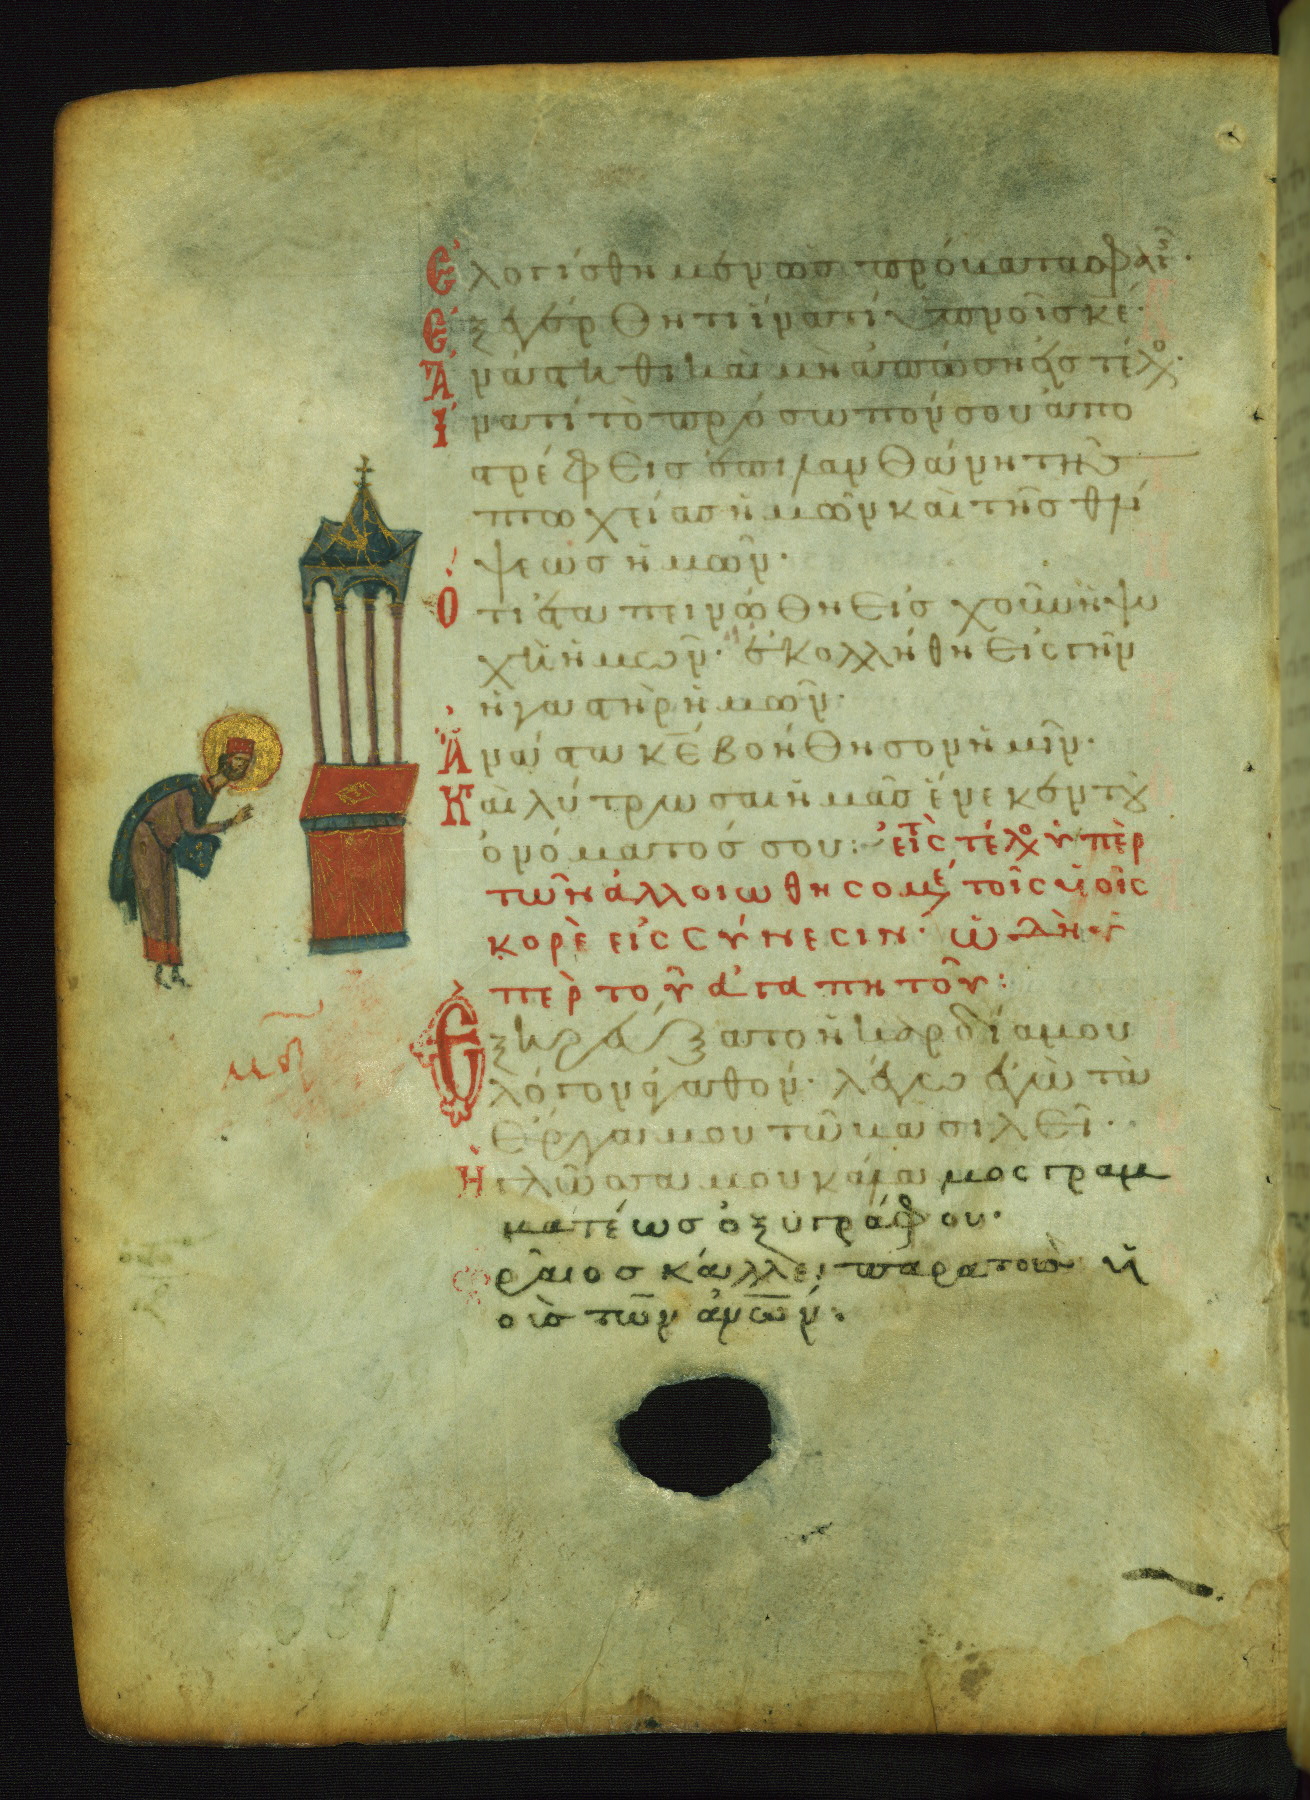 Ἐλογίσθημεν ὡς πρόβατα σφαγῆς·
Ἐξεγέρθητι ἵνατί ὑπνοῖς κε·
Ἀνάστηθι καὶ μὴ ἀπώσῃ εἰς τέλος·
Ἱνατί τὸ πρόσωπόν σου ἀπο
στρέφεις ἐπιλανθάνῃ τῆς
πτωχείας ἡμῶν καὶ τῆς θλί
ψεως ἡμῶν·
Ὅτι ἐταπεινώθη εἰς χοῦν ἡ ψυ
χὴ ἡμῶν· ἐκολλήθη εἰς γῆν
ἡ γαστὴρ ἡμῶν·
Ἀνάστα κε βοήθησον ἡμῖν·
Καὶ λύτρωσαι ἡμᾶς ἕνεκεν τοῦ
ὀνόματός σου: εἰς τέλος ὑπὲρ
τῶν ἀλλοιωθησομέ τοῖς υἱοῖς
κορὲ εἰς σύνεσιν· ὠδὴ ὑ
πὲρ τοῦ ἀγαπητοῦ:
Ἐξηρεύξατο ἡ καρδία μου
λόγον ἀγαθόν· λέγω ἐγὼ τὰ
ἔργα μου τῷ βασιλεῖ·
Ἡ γλῶσσα μου κάλαμος γραμ
ματέως ὀξυγράφου·
ὡραῖος κάλλει παρὰ τοὺς υἱ
οὺς τῶν ἀνων: